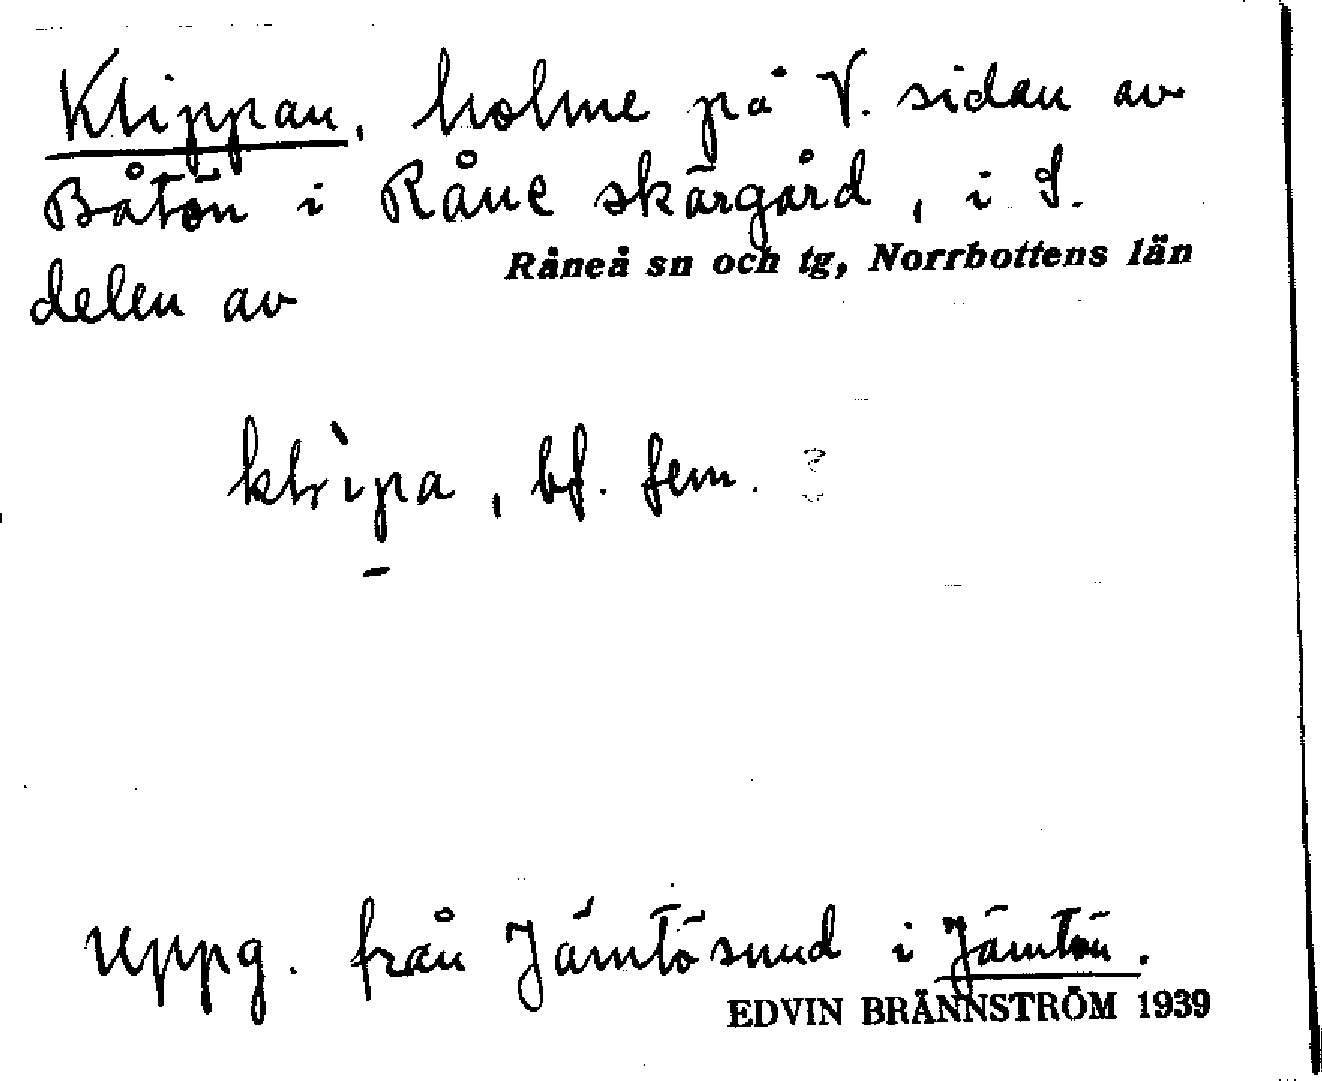 Klippan, holme på V. sidan av
Båtön i Råne skärgård, i S.
delen av
Råneå sn och tg, Norrbottens län
bf. fem. ?
uppg. från Jämtösund i Jämtön.
EDVIN BRÄNNSTRÖM 1939